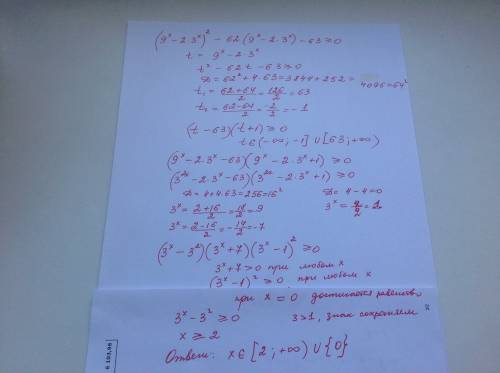 (9ˣ-2·3ˣ)² - 62(9ˣ-2·3ˣ) - 63 ≥ 0
t = 9ˣ-2·3ˣ
t² - 62t - 63 ≥ 0
D = 62² + 4·63 = 3844 + 252 = 4096 = 64²
t₁ = (62+64)/2 = 126/2 = 63
t₂ = (62-64)/2 = -2/2 = -1
(t-63)(t+1) ≥ 0
t∈(-∞;-1]∪[63;+∞)
(9ˣ-2·3ˣ-63)(9ˣ-2·3ˣ+1) ≥ 0
(3²ˣ-2·3ˣ-63)(3²ˣ-2·3ˣ+1) ≥ 0
D = 4+4·63 = 256 = 16² D = 4-4=0
3ˣ = (2+16)/2 = 18/2 = 9 3ˣ = 2/2 = 1
3ˣ = (2-16)/2 = -14/2 = -7
(3ˣ-3²)(3ˣ+7)(3ˣ-1)² ≥ 0
3ˣ+7>0 при любом x
(3ˣ-1)² ≥ 0, при любом x
при x = 0 достигается равенство
3ˣ-3² ≥ 0 3>1, знак сохраняем
x ≥ 2
Ответ: x∈[2;+∞)∪{0}